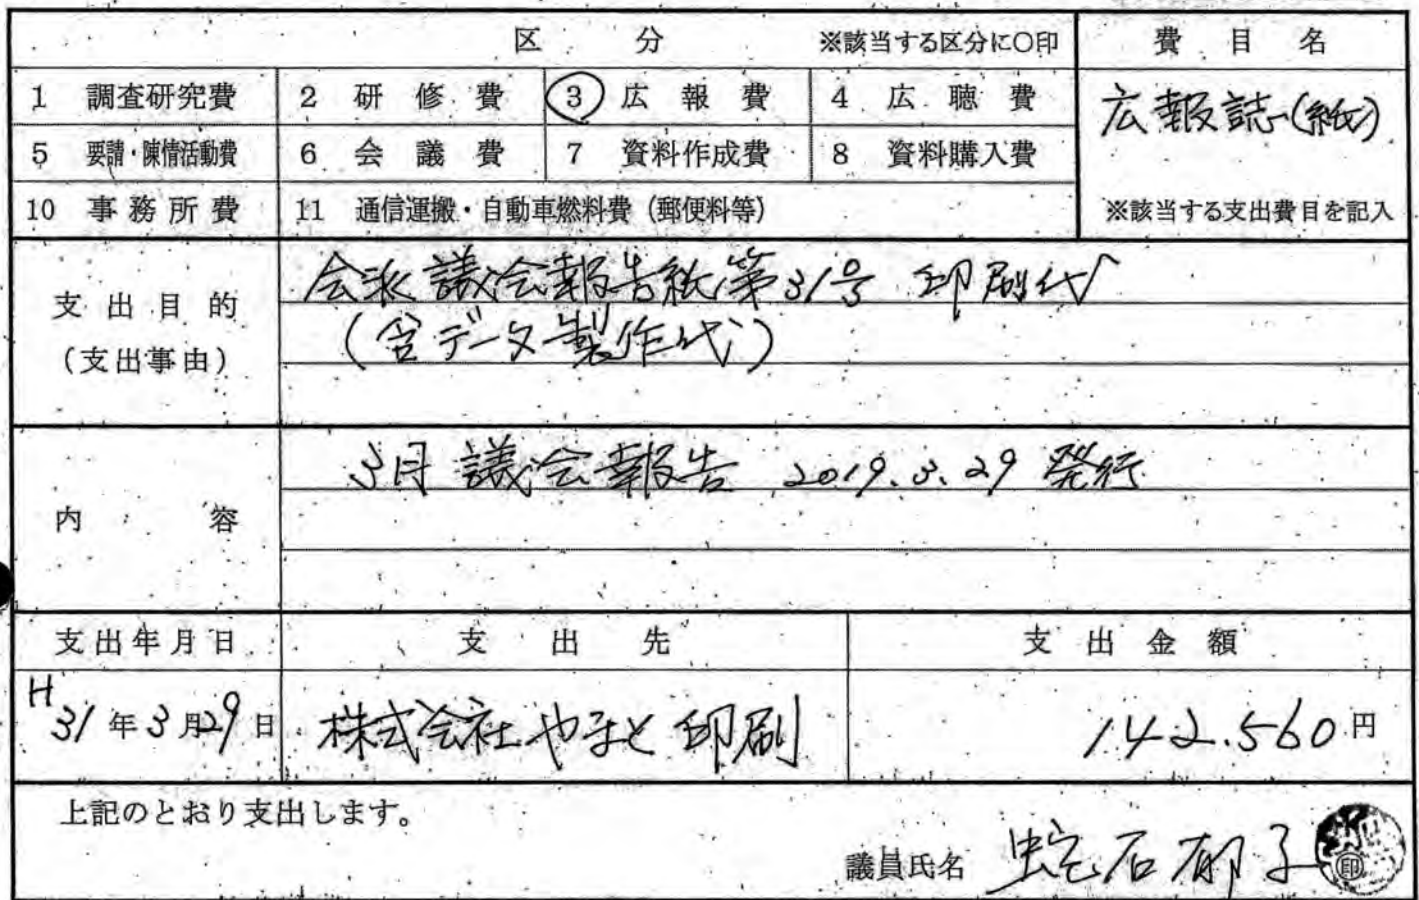 区 分 ※該当する区分に○印 費目名
1 調査研究費 2 研修費 3 広報費 4 広聴費 広報誌(紙)
5 要請・陳情活動費 6 会議費 7 資料作成費 8 資料購入費
10 事務所費 11 通信運搬・自動車燃料費(郵便料等) ※該当する支出費目を記入
支出目的
(支出事由)
会派議会報告紙第31号 印刷代
(含データ製作代)
内容
3月議会報告 2019.3.29 発行
支出年月日 支出先 支出金額
H31年3月29日 株式会社やまと印刷 142.560円
上記のとおり支出します。
議員氏名 蛇石郁子 印